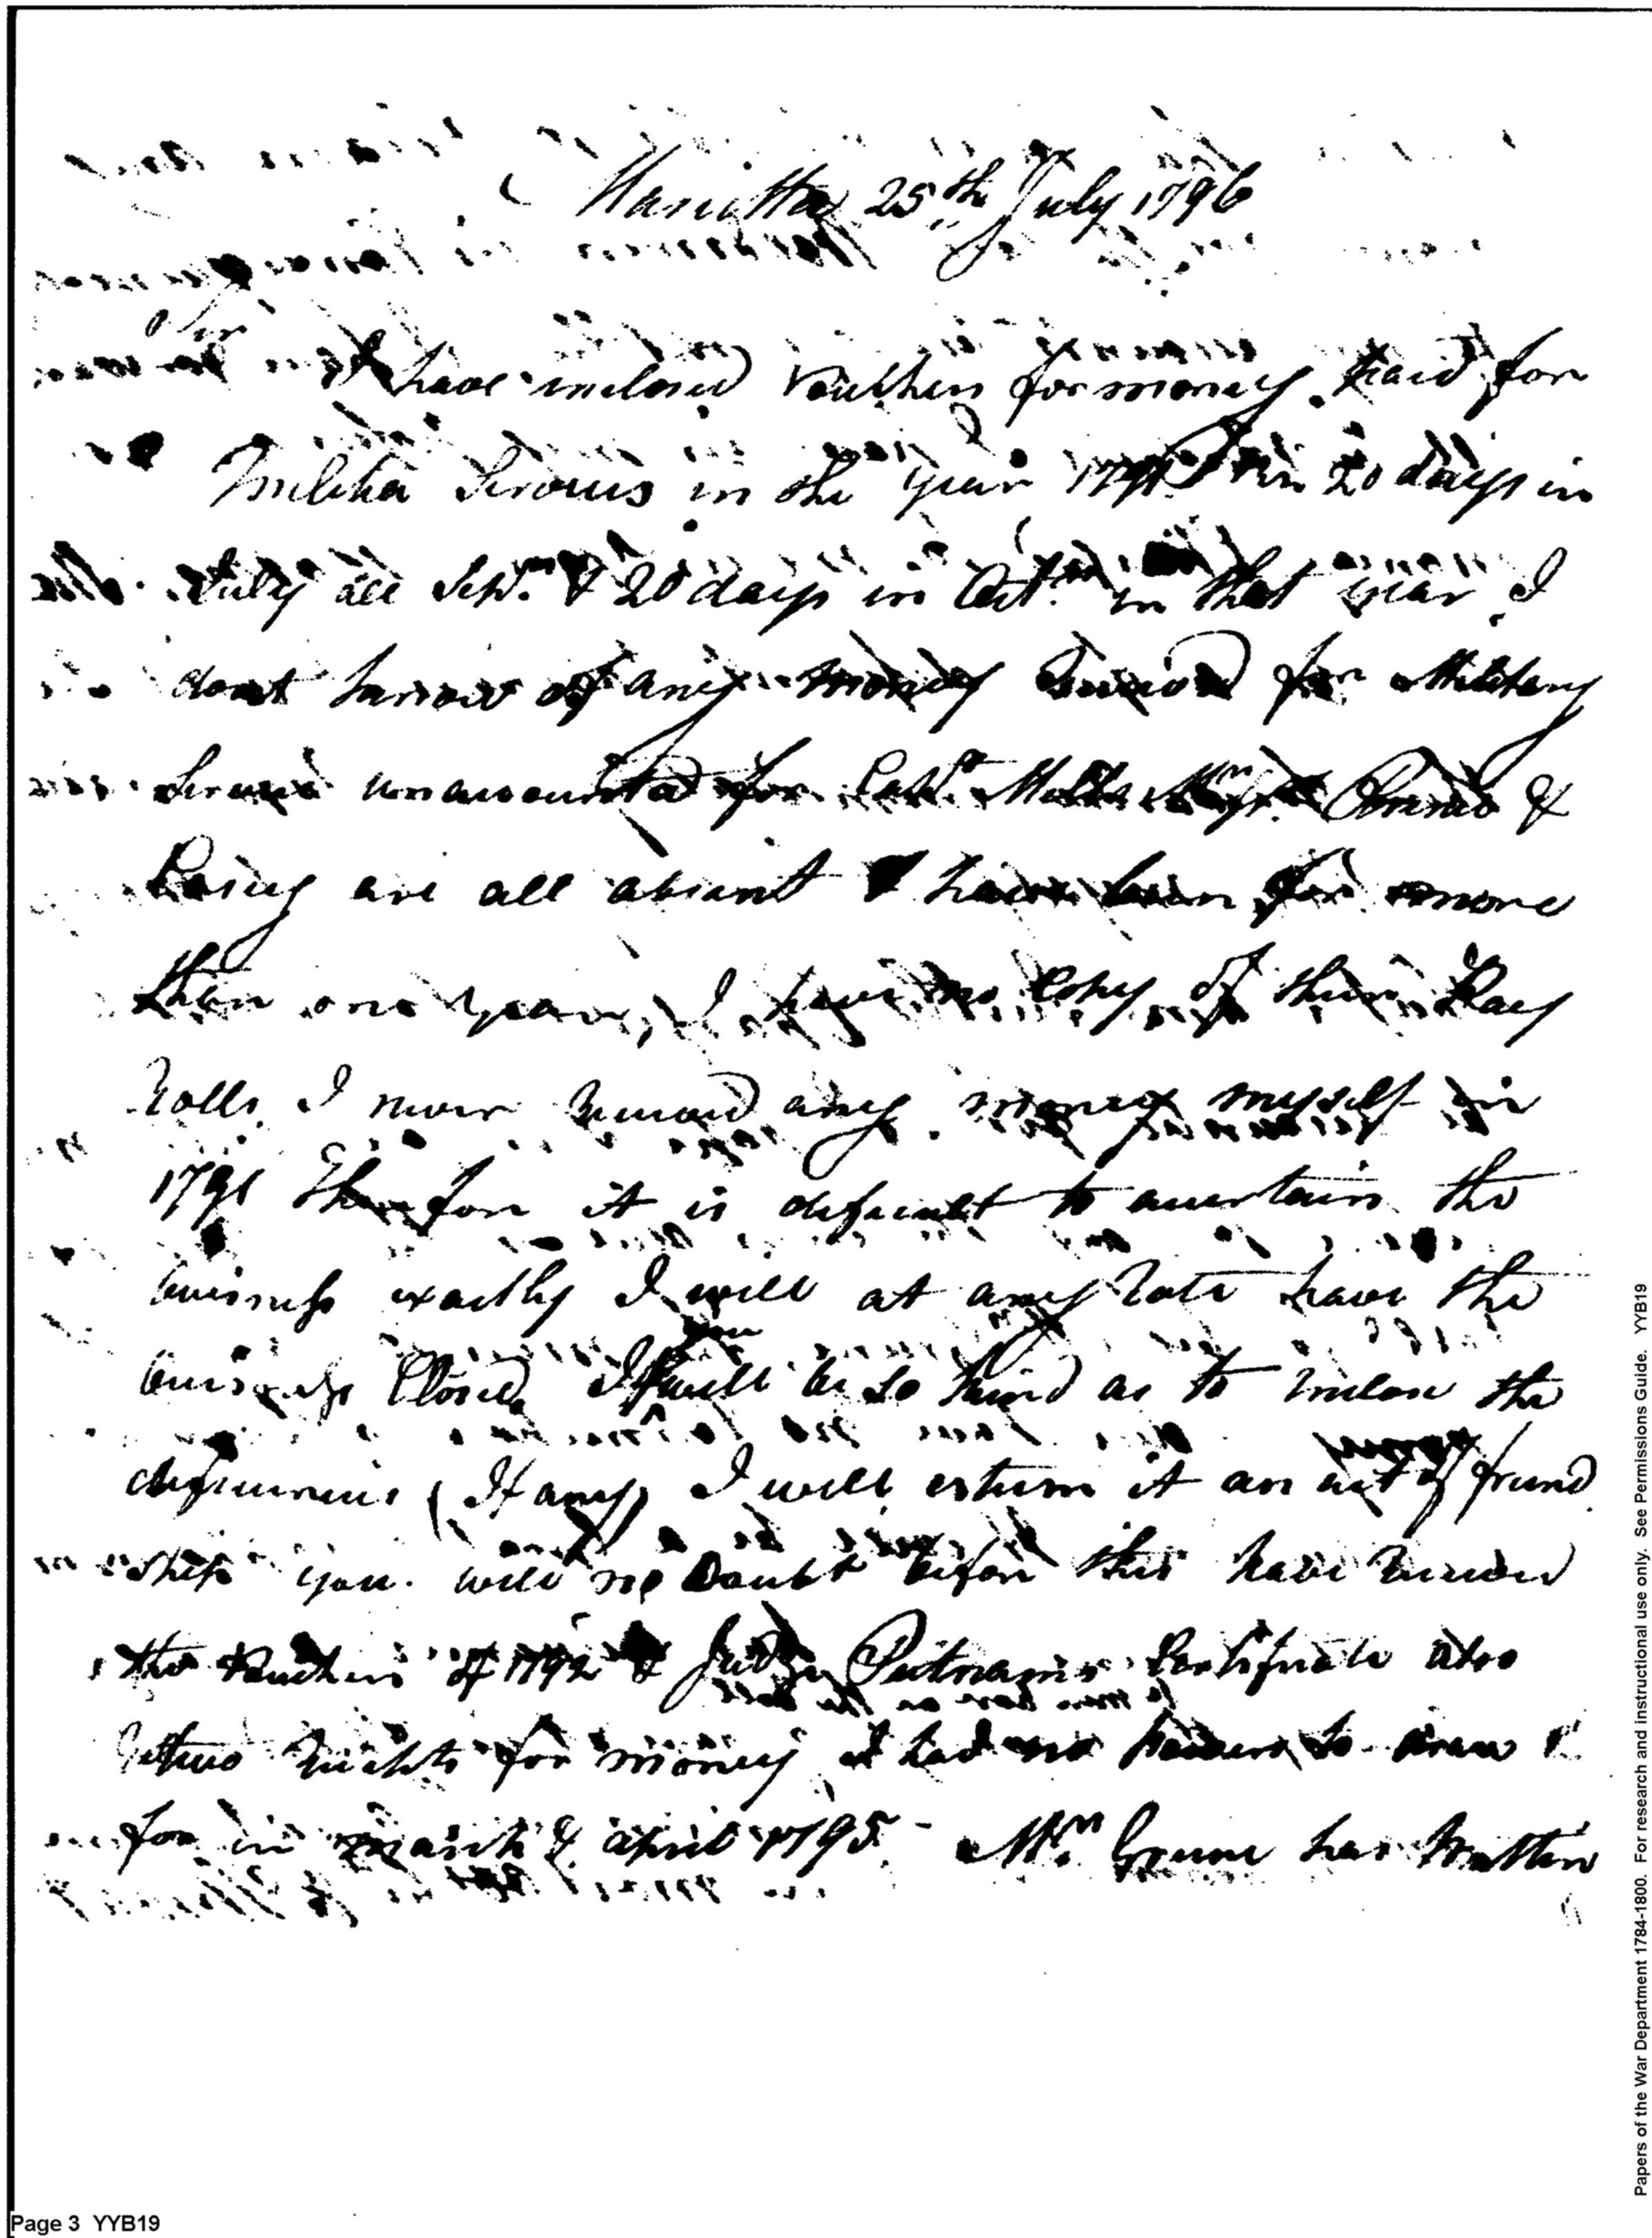 Marietta 25th July 1796
Sir
I have inclosed Vouchers for money paid for
Militia Services in the year 1791 20 days in
July all Sepr. & 20 days in Octr. in that year I
dont know of any money received for Military
Services unaccounted for Capt. Mr. &
are all absent & have been for more
than one year, I have no Copy of their Pay
Rolls I never received any money myself in
1791 Therefore it is dificult to ascertain the
business exactly I will at any rate have the
business Closed, If you will be so kind as to inclose the
deficiencies (If any) I will esteem it an act of friend
ship you will no Doubt before this have received
the Vouchers of 1792 & Judge Putnams Certificate also
for money I had no to draw
for in march & april 1795 - Mr. Greene has written
Papers of the War Department 1784-1800. For research and instructional use only. See Permissions Guide. YYB19
Page 3 YYB19